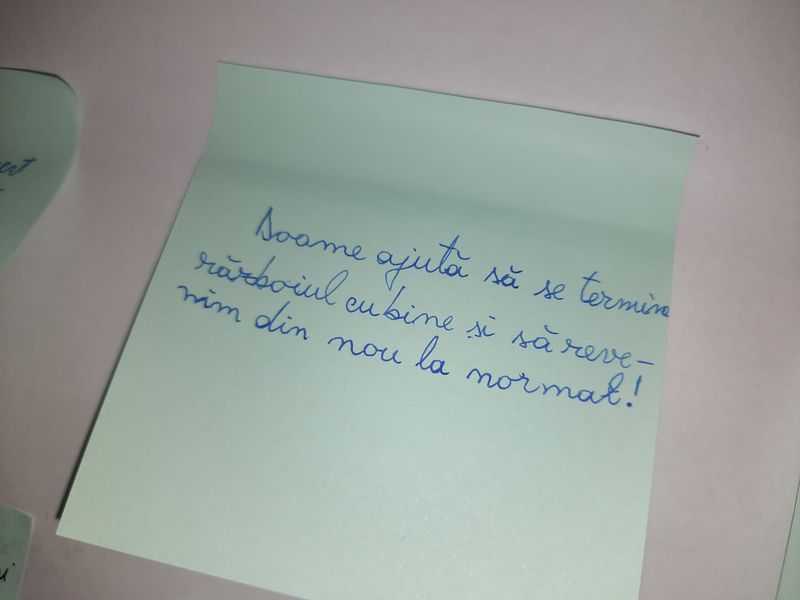 Doamne ajută să se termine
războiul cu bine și să reve-
nim din nou la normal!